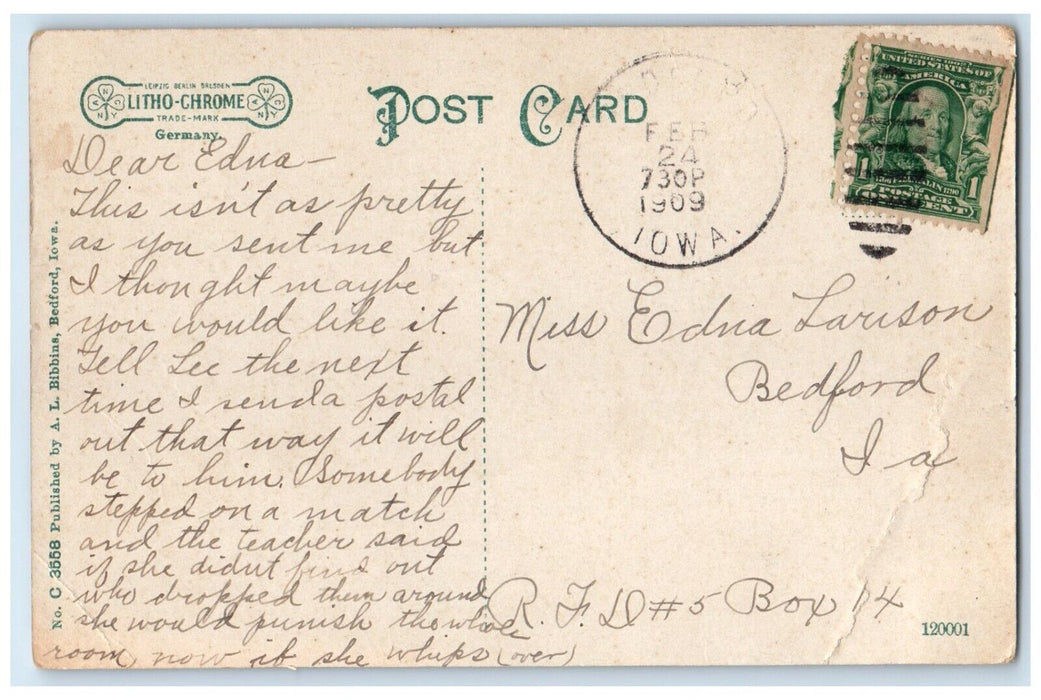 LEIPZIG BERLIN DRESDEN
LITHO-CHROME
TRADE-MARK
Germany.
POST CARD
FEB
24
730P
1909
IOWA.
SERIES 1902
UNITED STATES OF
AMERICA
1 1
FRANKLIN 1790
POSTAGE
CENT
No. C 3558 Published by A. L. Bibbins, Bedford, Iowa.
Dear Edna—
This isn't as pretty
as you sent me but
I thought maybe
you would like it.
Tell Lee the next
time I send a postal
out that way it will
be to him. Somebody
stepped on a match
and the teacher said
if she didnt find out
who dropped them around
she would punish the whole
room, now if she whips (over)
Miss Edna Larison
Bedford
Ia
R. F. D #5 Box 14
120001